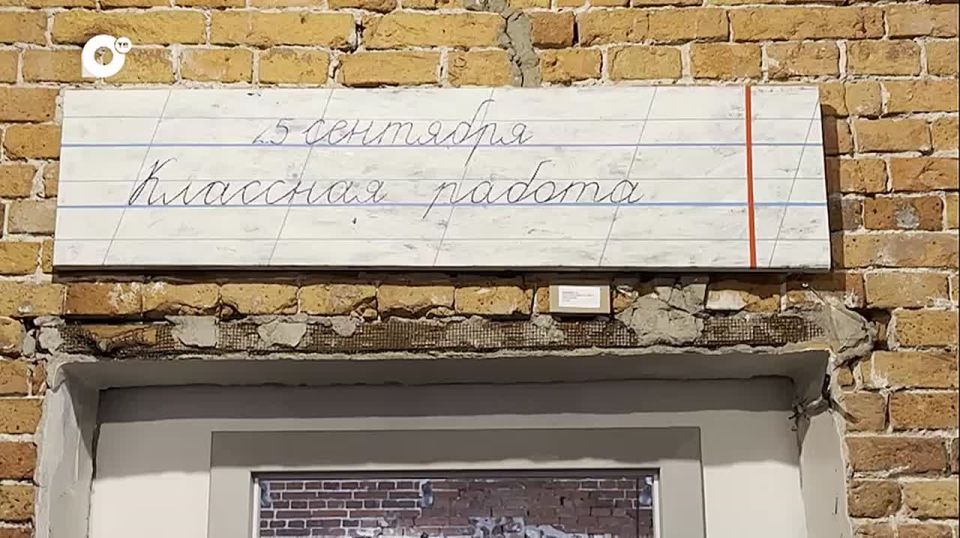 25 сентября
Классная работа